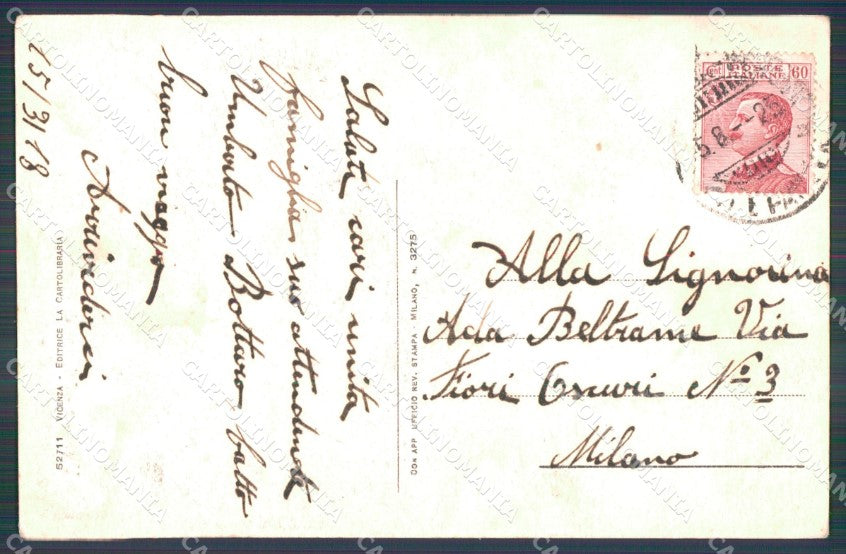 15/3/18
Saluti cari unita
famiglia suo attendente
Umberto Bottaro fatto
buon viaggo
Arrivederci
52711 VICENZA - EDITRICE LA CARTOLIBRARIA
CON APP. UFFICIO REV. STAMPA - MILANO, N. 3275
POSTE
ITALIANE
60
Alla Signorina
Ada Beltrame Via
Fiori Oscuri No 3
Milano
CARTOLINOMANIA